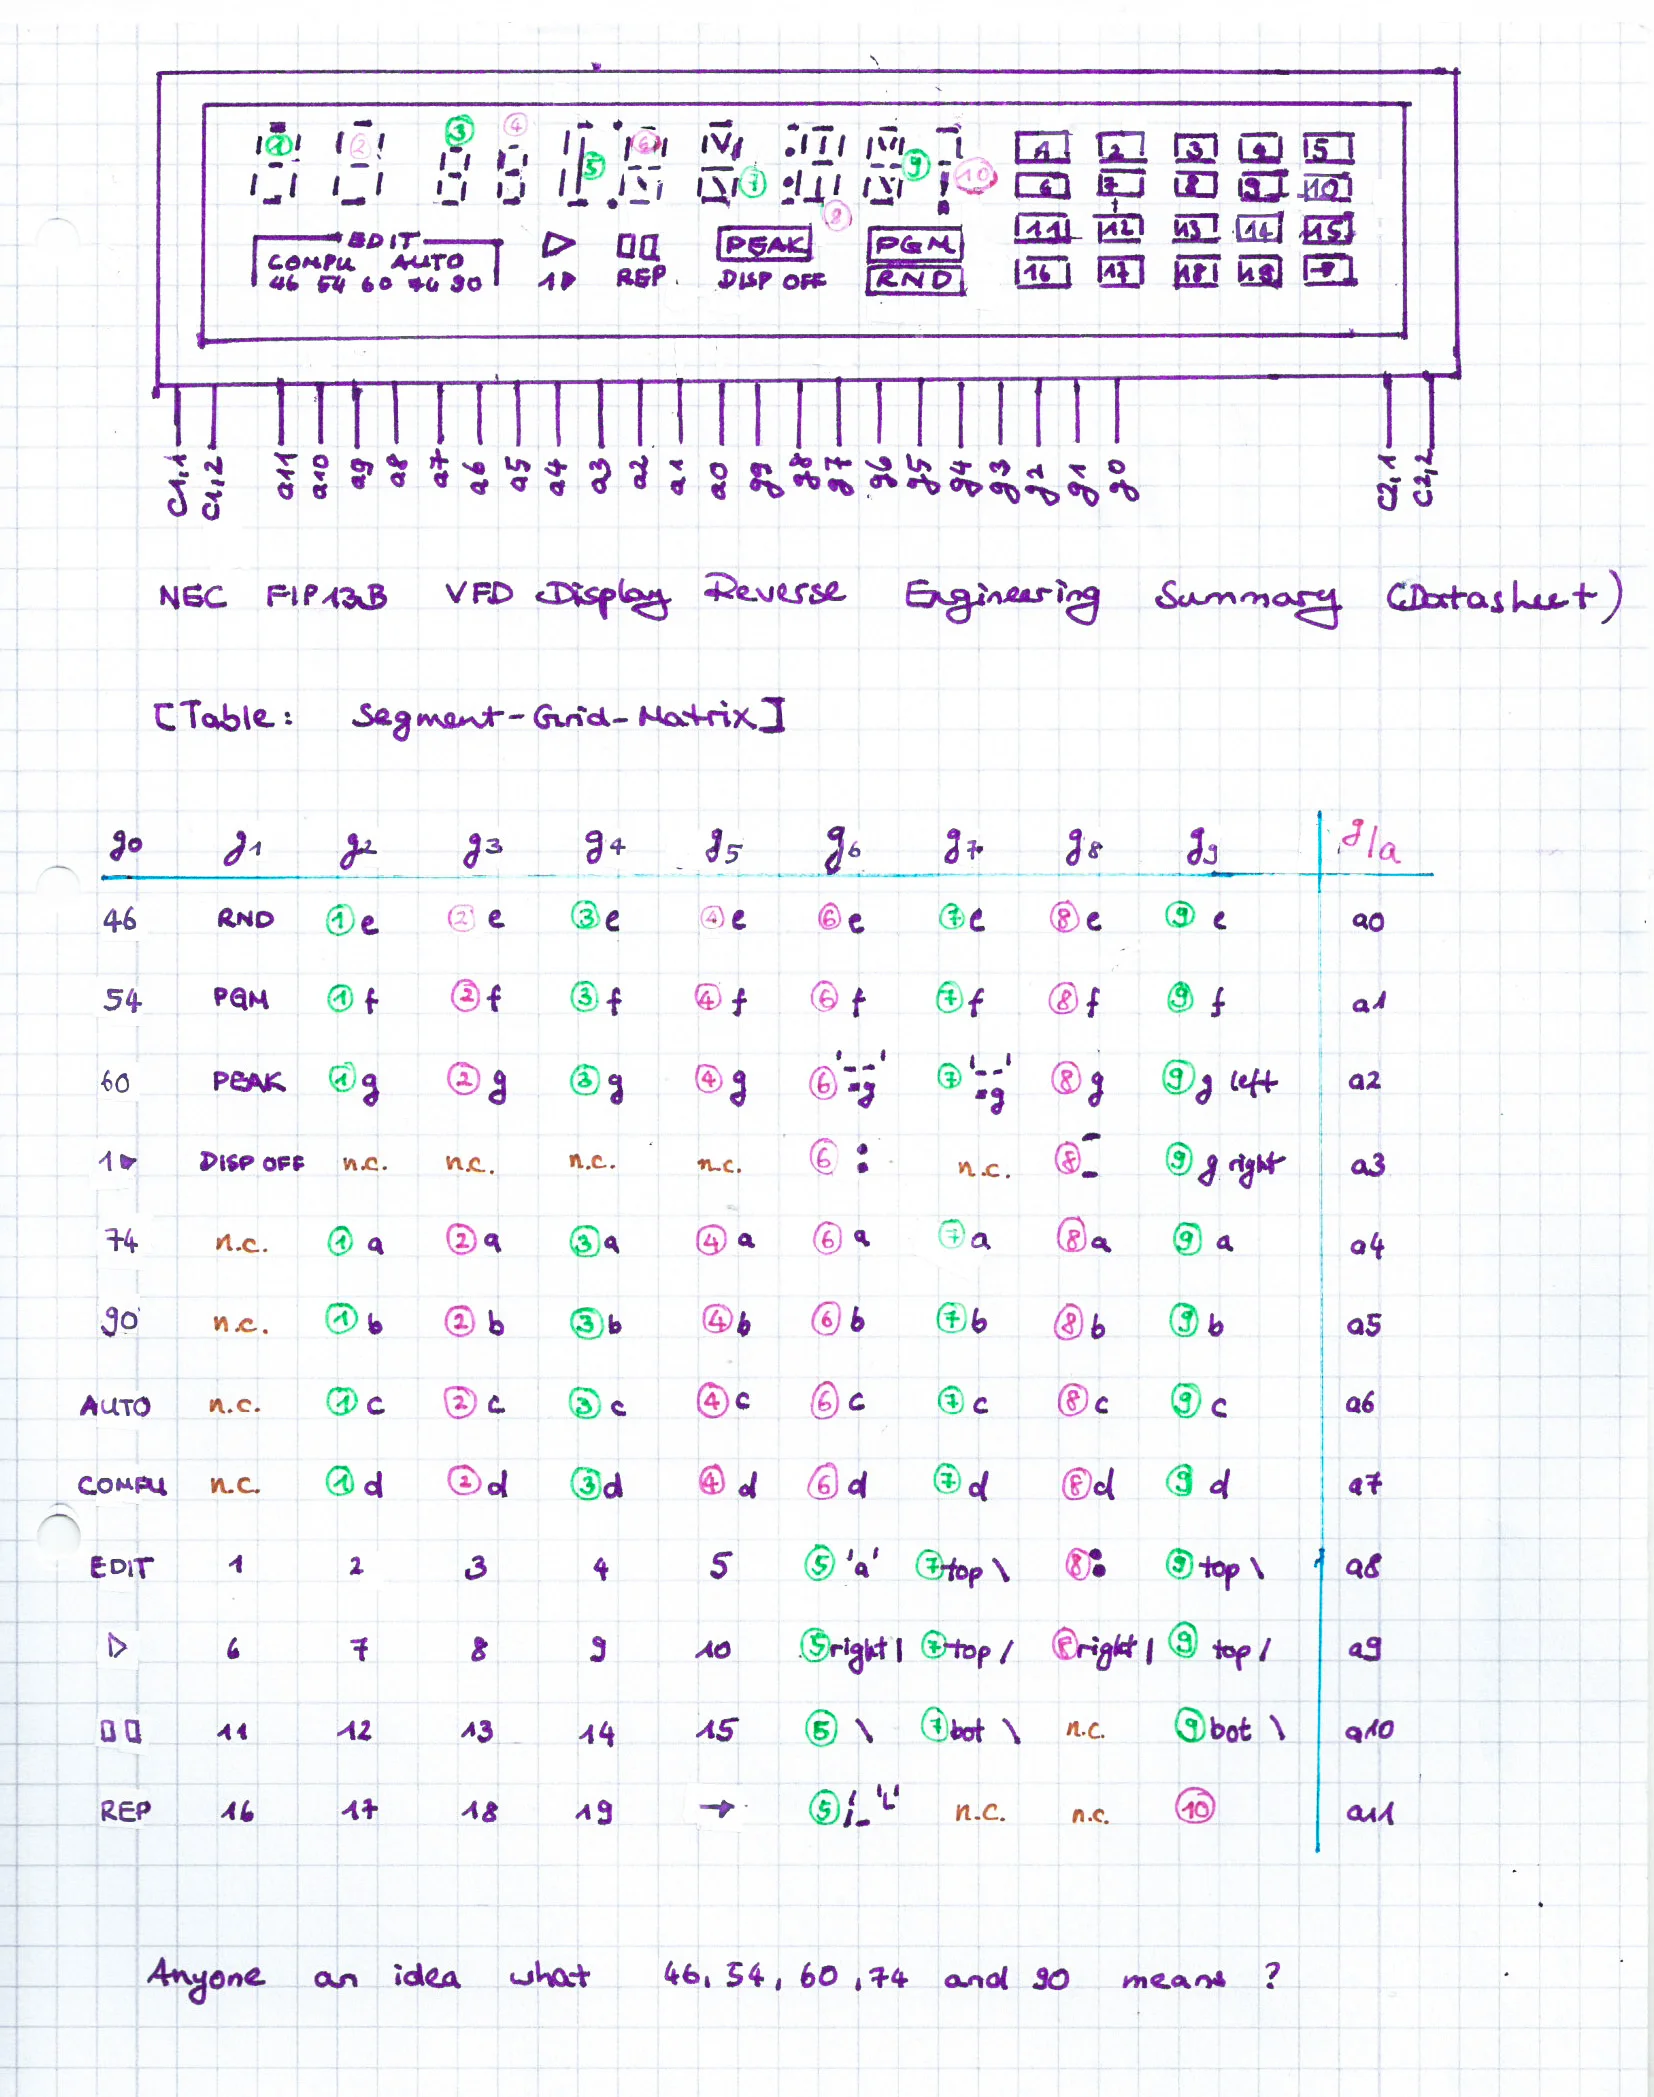 ① ② ③ ④ ⑤ ⑥ ⑦ ⑧ ⑨ ⑩
1 2 3 4 5
6 7 8 9 10
11 12 13 14 15
16 17 18 19 →
EDIT
COMPU AUTO
46 54 60 74 90
▷ ▯▯ PEAK PGM
1▶ REP. DISP OFF RND
C1,1 C1,2 a11 a10 a9 a8 a7 a6 a5 a4 a3 a2 a1 a0 g9 g8 g7 g6 g5 g4 g3 g2 g1 g0 C2,1 C2,2
NEC FIP13B VFD Display Reverse Engineering Summary (Datasheet)
[Table: Segment-Grid-Matrix]
g0 g1 g2 g3 g4 g5 g6 g7 g8 g9 g/a
46 RND ① e ② e ③ e ④ e ⑥ e ⑦ e ⑧ e ⑨ e a0
54 PGM ① f ② f ③ f ④ f ⑥ f ⑦ f ⑧ f ⑨ f a1
60 PEAK ① g ② g ③ g ④ g ⑥ '--' =g ⑦ '--' =g ⑧ g ⑨ g left a2
1▶ DISP OFF n.c. n.c. n.c. n.c. ⑥ : n.c. ⑧ ⑨ g right a3
74 n.c. ① a ② a ③ a ④ a ⑥ a ⑦ a ⑧ a ⑨ a a4
90 n.c. ① b ② b ③ b ④ b ⑥ b ⑦ b ⑧ b ⑨ b a5
AUTO n.c. ① c ② c ③ c ④ c ⑥ c ⑦ c ⑧ c ⑨ c a6
COMPU n.c. ① d ② d ③ d ④ d ⑥ d ⑦ d ⑧ d ⑨ d a7
EDIT 1 2 3 4 5 ⑤ 'a' ⑦ top \ ⑧ : ⑨ top \ a8
▷ 6 7 8 9 10 ⑤ right | ⑦ top / ⑧ right | ⑨ top / a9
▯▯ 11 12 13 14 15 ⑤ \ ⑦ bot \ n.c. ⑨ bot \ a10
REP 16 17 18 19 → ⑤ 'L' n.c. n.c. ⑩ a11
Anyone an idea what 46, 54, 60, 74 and 90 means ?